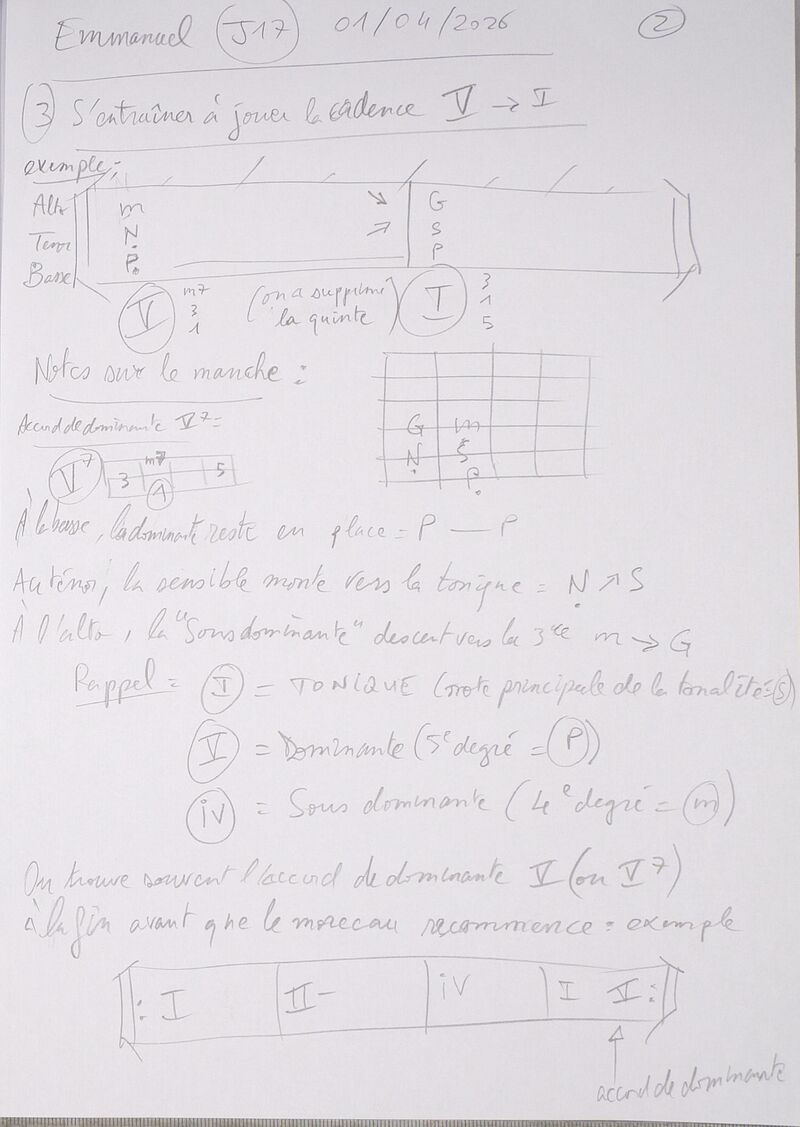 Emmanuel J17 01/04/2026 2
3 S'entraîner à jouer la cadence V → I
exemple:
Alto m ↘ G
Tenor Ṇ ↗ S
Basse P. P
V m7 (on a supprimé I 3
3 la quinte) 1
1 5
Notes sur le manche :
G m
N. S
P.
Accord de dominante V7=
V7 3 m7 1 5
À la basse, la dominante reste en place = P — P
Au ténor, la sensible monte vers la tonique = Ṇ ↗ S
À l'alto, la "Sous dominante" descent vers la 3rce m → G
Rappel = I = TONIQUE (note principale de la tonalité = S)
V = Dominante (5e degré = P)
iv = Sous dominante (4e degré = m)
On trouve souvent l'accord de dominante V (ou V7)
à la fin avant que le morceau recommence = exemple
: I II- iv I V :
↑
accord de dominante